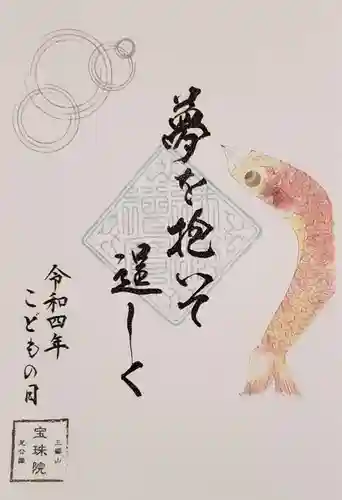 夢を抱いて
逞しく
令和四年
こどもの日
三縁山
宝珠院